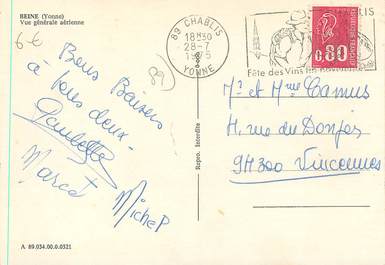 BEINE (Yonne)
Vue générale aérienne
6 €
89 CHABLIS
18H30
28-7
1975
YONNE
Fête des Vins
0,80
89
Bons Baisers
à tous deux.
Paulette
Marcel
Michel
Repro. Interdite
Mr et Mme Camus
11, rue du Donjon
94300 Vincennes
A 89.034.00.0.0321